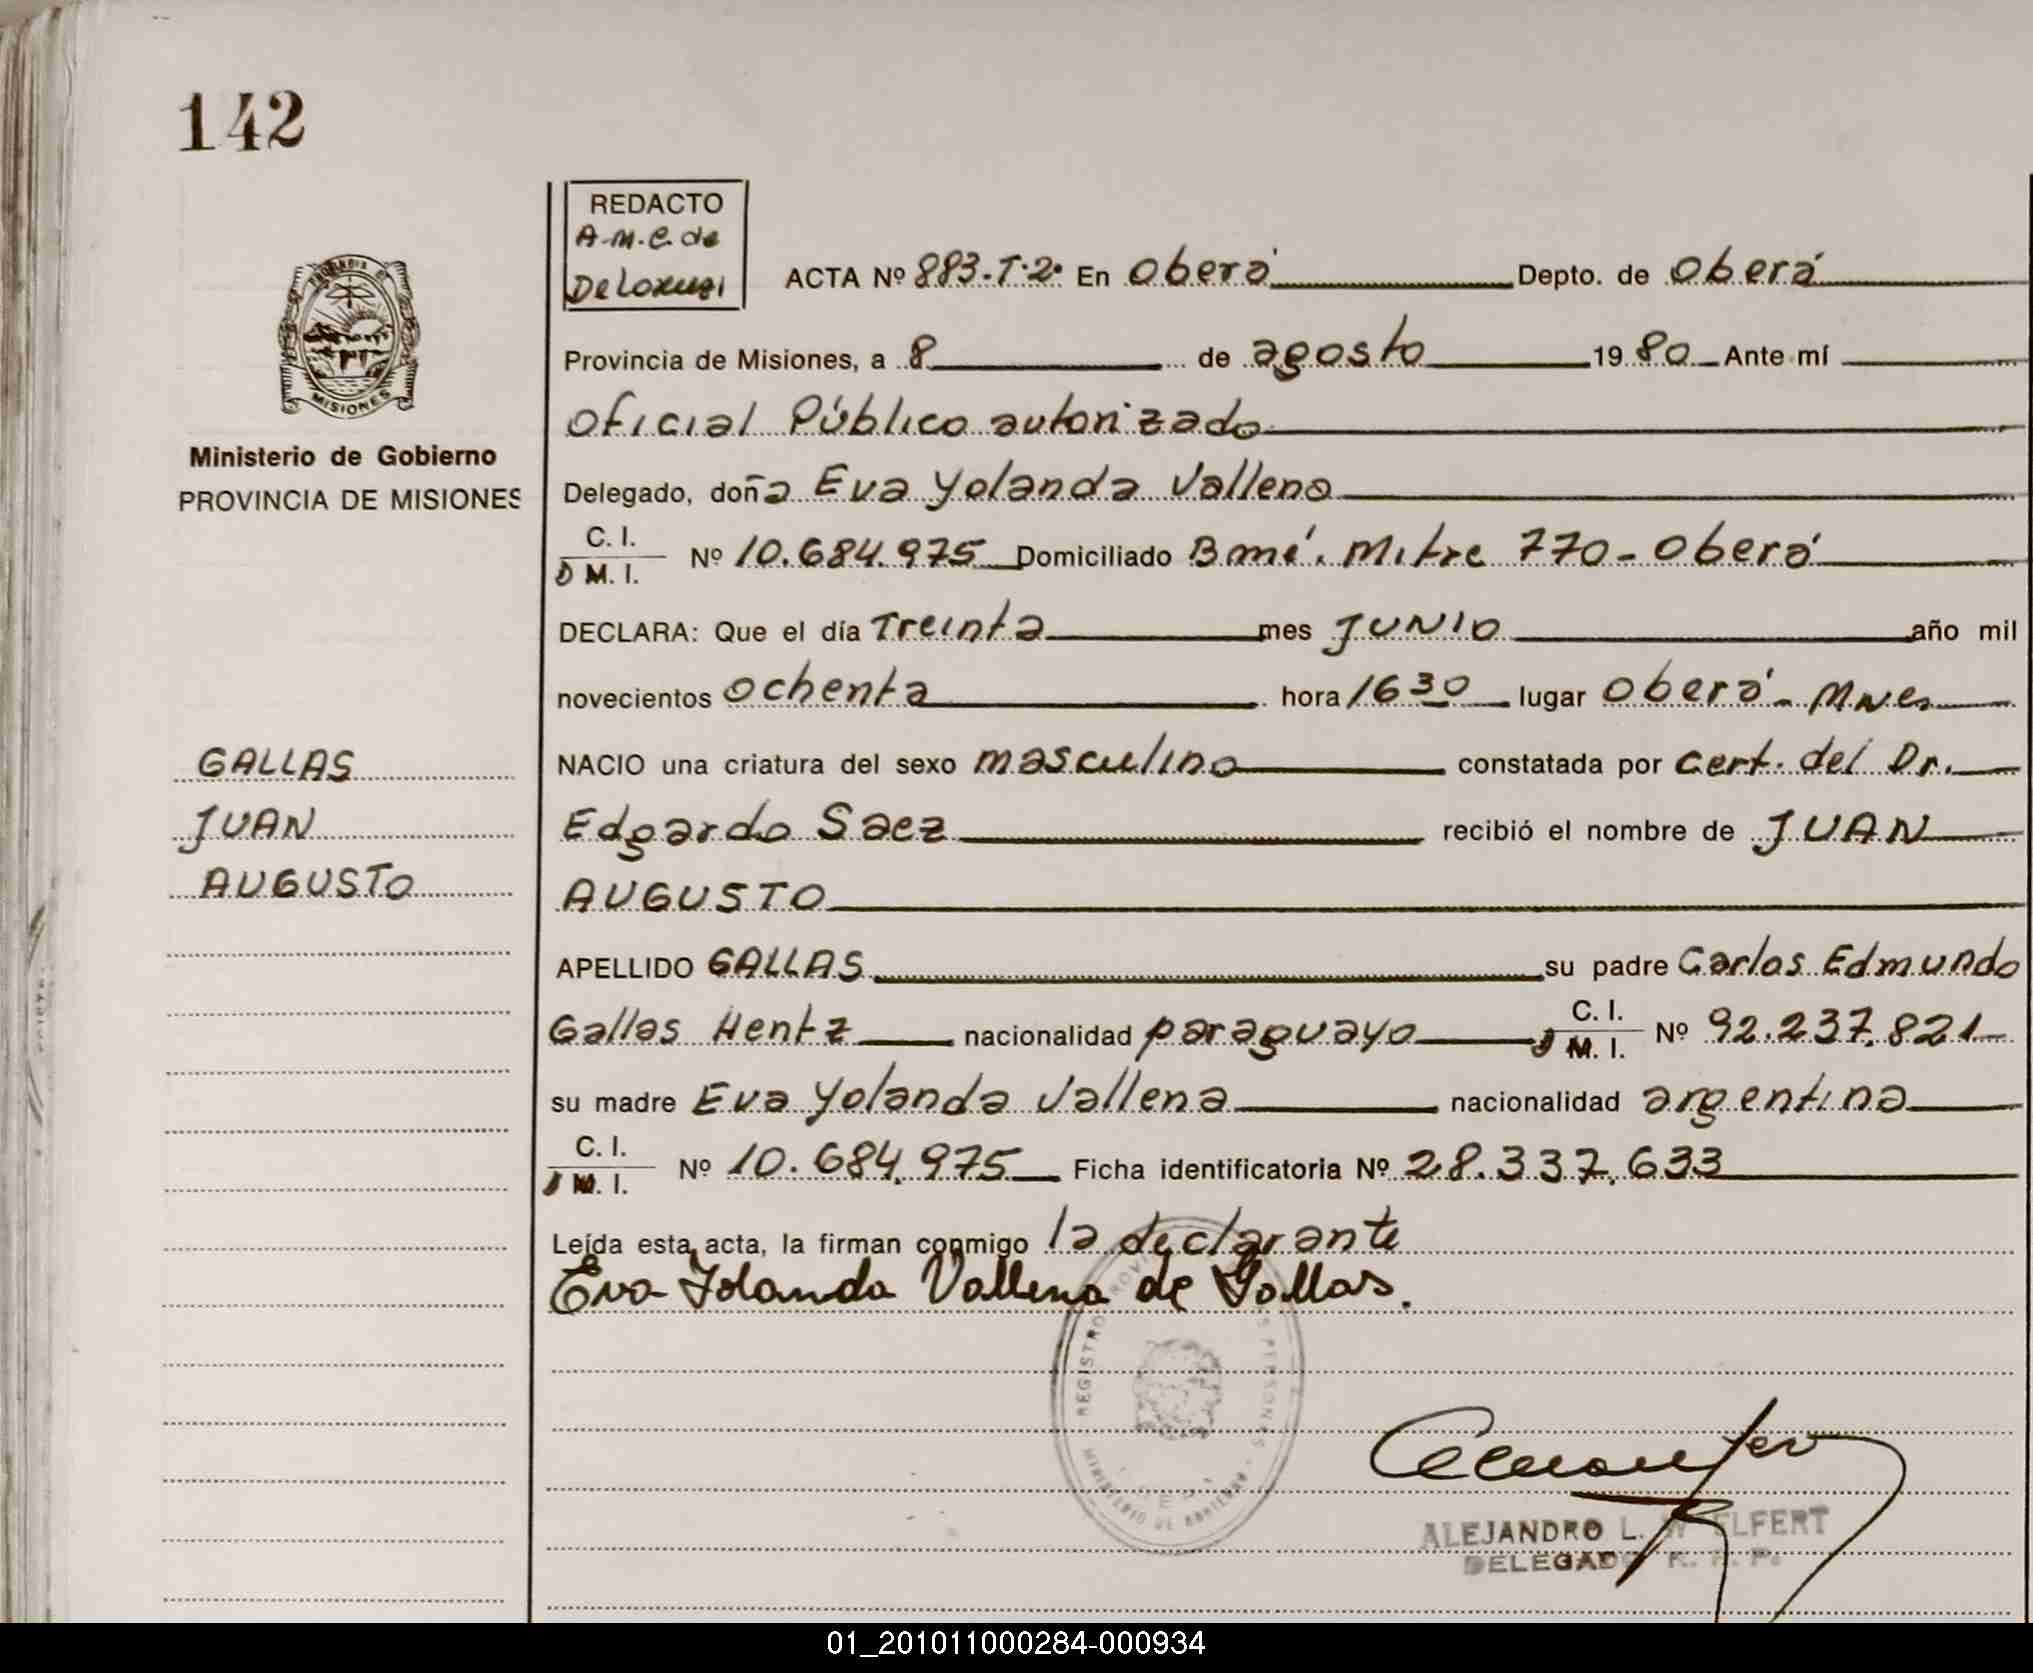 142
REDACTO
A.M.C. de
ACTA Nº 883-T.2º En Oberá Depto. de Oberá
Provincia de Misiones, a 8 de agosto 1980 Ante mí
Oficial Público autorizado
Ministerio de Gobierno
PROVINCIA DE MISIONES
MISIONES
Delegado, doña Eva Yolanda Vallena
C. I.
D M. I. Nº 10.684.975 Domiciliado Bmé. Mitre 770 - Oberá
DECLARA: Que el día Treinta mes JUNIO año mil
novecientos ochenta hora 1630 lugar Oberá - Mnes
GALLAS
JUAN
AUGUSTO
NACIO una criatura del sexo masculino constatada por cert. del Dr.
Edgardo Saez recibió el nombre de JUAN
AUGUSTO
APELLIDO GALLAS su padre Carlos Edmundo
Gallas Hentz nacionalidad paraguayo C. I. D M. I. Nº 92.237.821
su madre Eva Yolanda Vallena nacionalidad argentina
C. I.
M. I. Nº 10.684.975 Ficha identificatoria Nº 28.337.633
Leída esta acta, la firman conmigo la declarante
Eva Yolanda Vallena de Gallas.
ALEJANDRO L. W ELFERT
DELEGADO R. P.
01_201011000284-000934